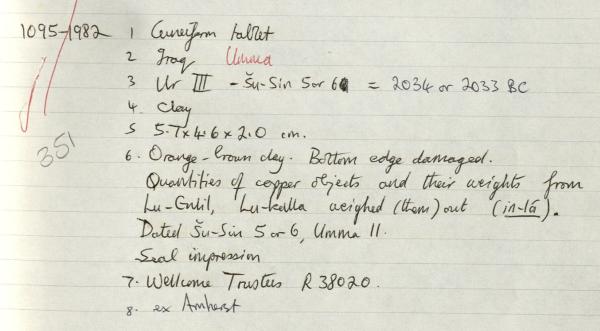 1095-1982 1 Cuneiform tablet
2 Iraq Umma
3 Ur III - Šu-Sin 5 or 6 = 2034 or 2033 BC
4. Clay
5 5.7 x 4.6 x 2.0 cm.
351
6. Orange-brown clay. Bottom edge damaged.
Quantities of copper objects and their weights from
Lu-Enlil, Lu-kalla weighed (them) out (in-lá).
Dated Šu-Sin 5 or 6, Umma II.
Seal impression
7. Wellcome Trustees R 38020.
8. ex Amherst